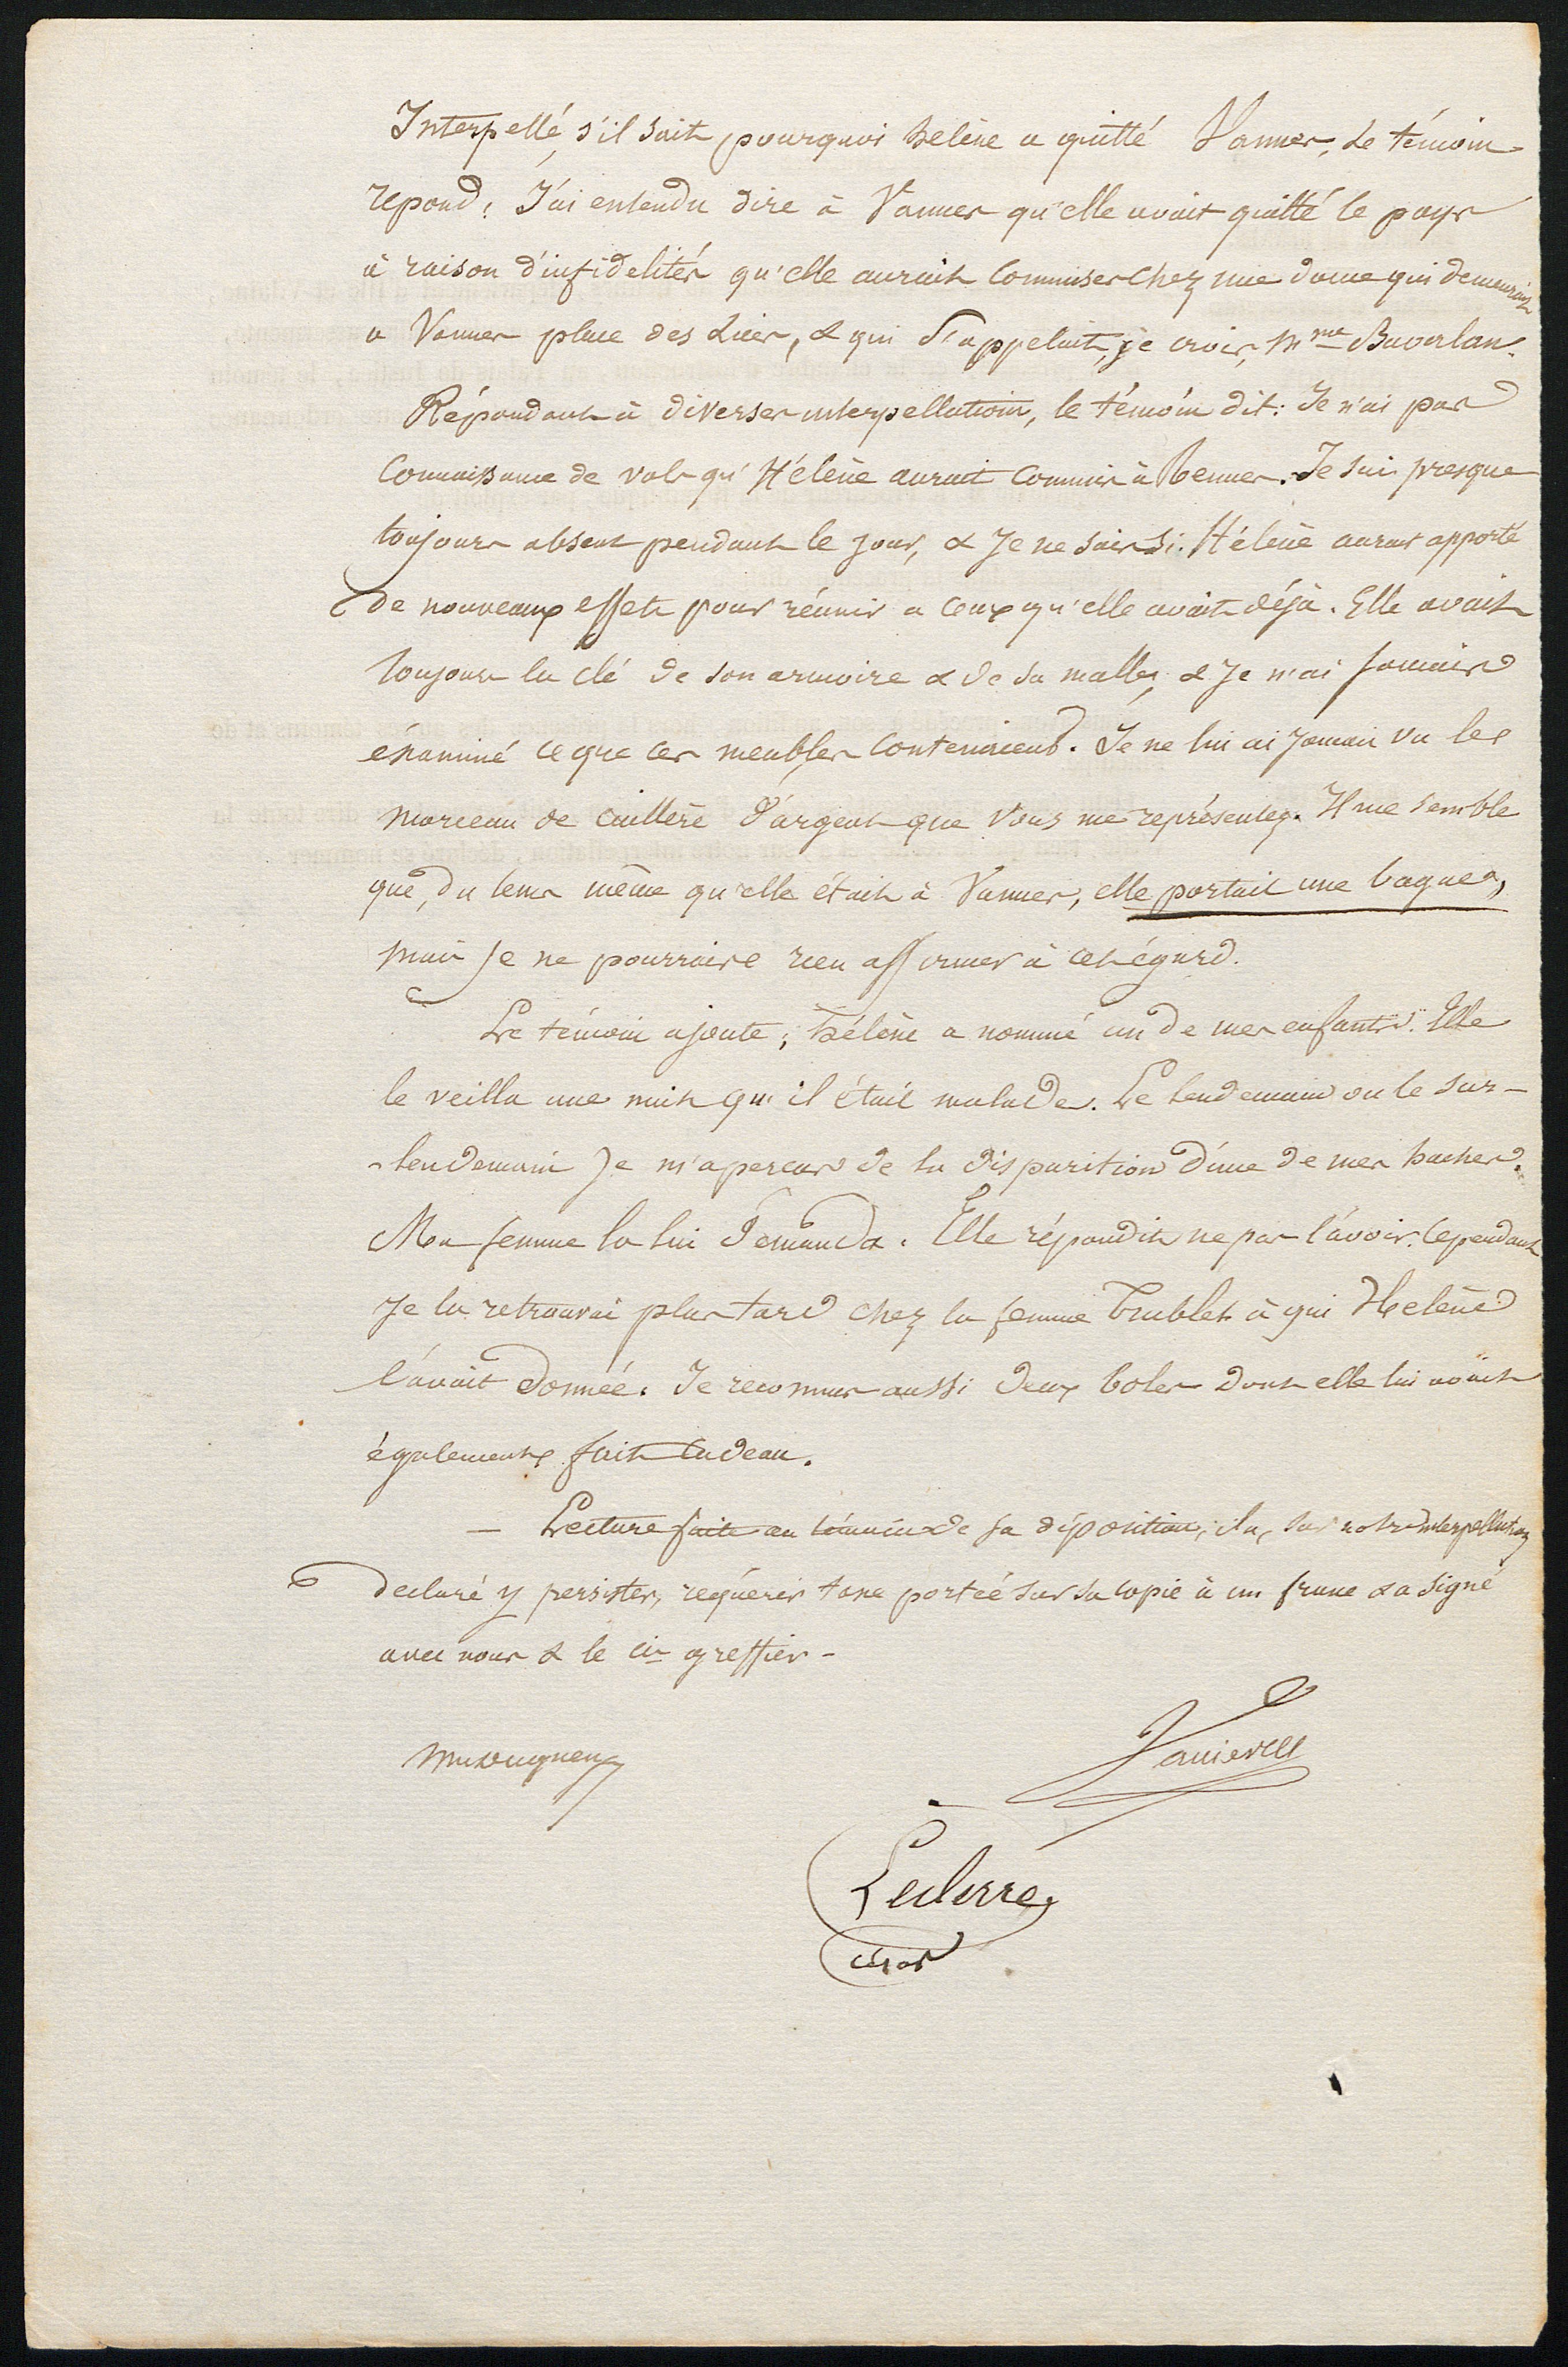 Interpellé s'il sait pourquoi helène a quitté Vannes, Le témoin
repond: J'ai entendu dire à Vannes qu'elle avait quitté le pays
à raison d'infidelités qu'elle aurait commises chez une dame qui demeurait
a Vannes place des Lices, & qui s'appelait, je crois, Mme Baverlan.
Répondant à diverses interpellations, le témoin dit: Je n'ai pas
connaissance de vols qu'Hélène aurait commis à Rennes. Je suis presque
toujours absent pendant le jour, & je ne sais si Hélène aurait apporté
de nouveaux effets pour réunir a ceux qu'elle avait déjà. Elle avait
toujours la clé de son armoire & de sa malle, & je n'ai jamais
éxaminé ce que ces meubles contenaient. Je ne lui ai jamais vu les
morceau de cuillère d'argent que vous me représentez. Il me semble
que, du tems même qu'elle était à Vannes, elle portait une bague,
mais je ne pourrais rien affirmer à cet égard.
Le témoin ajoute; hélène a nommé un de mes enfants. Elle
le veilla une nuit qu'il était malade. Le lendemain ou le sur-
-lendemain je m'aperçus de la disparition d'une de mes haches.
Ma femme la lui demanda. Elle répondit ne pas l'avoir. Cependant
je la retrouvai plus tard chez la femme Trublet à qui Helène
l'avait donnée. Je reconnus aussi deux boles dont elle lui avait
également fait cadeau.
— Lecture faite au témoin de sa déposition, il a, sur notre interpellation
declaré y persister, requérir taxe portée sur sa copie à un franc & a signé
avec nous & le cis greffier -
Janierell
Leclerre